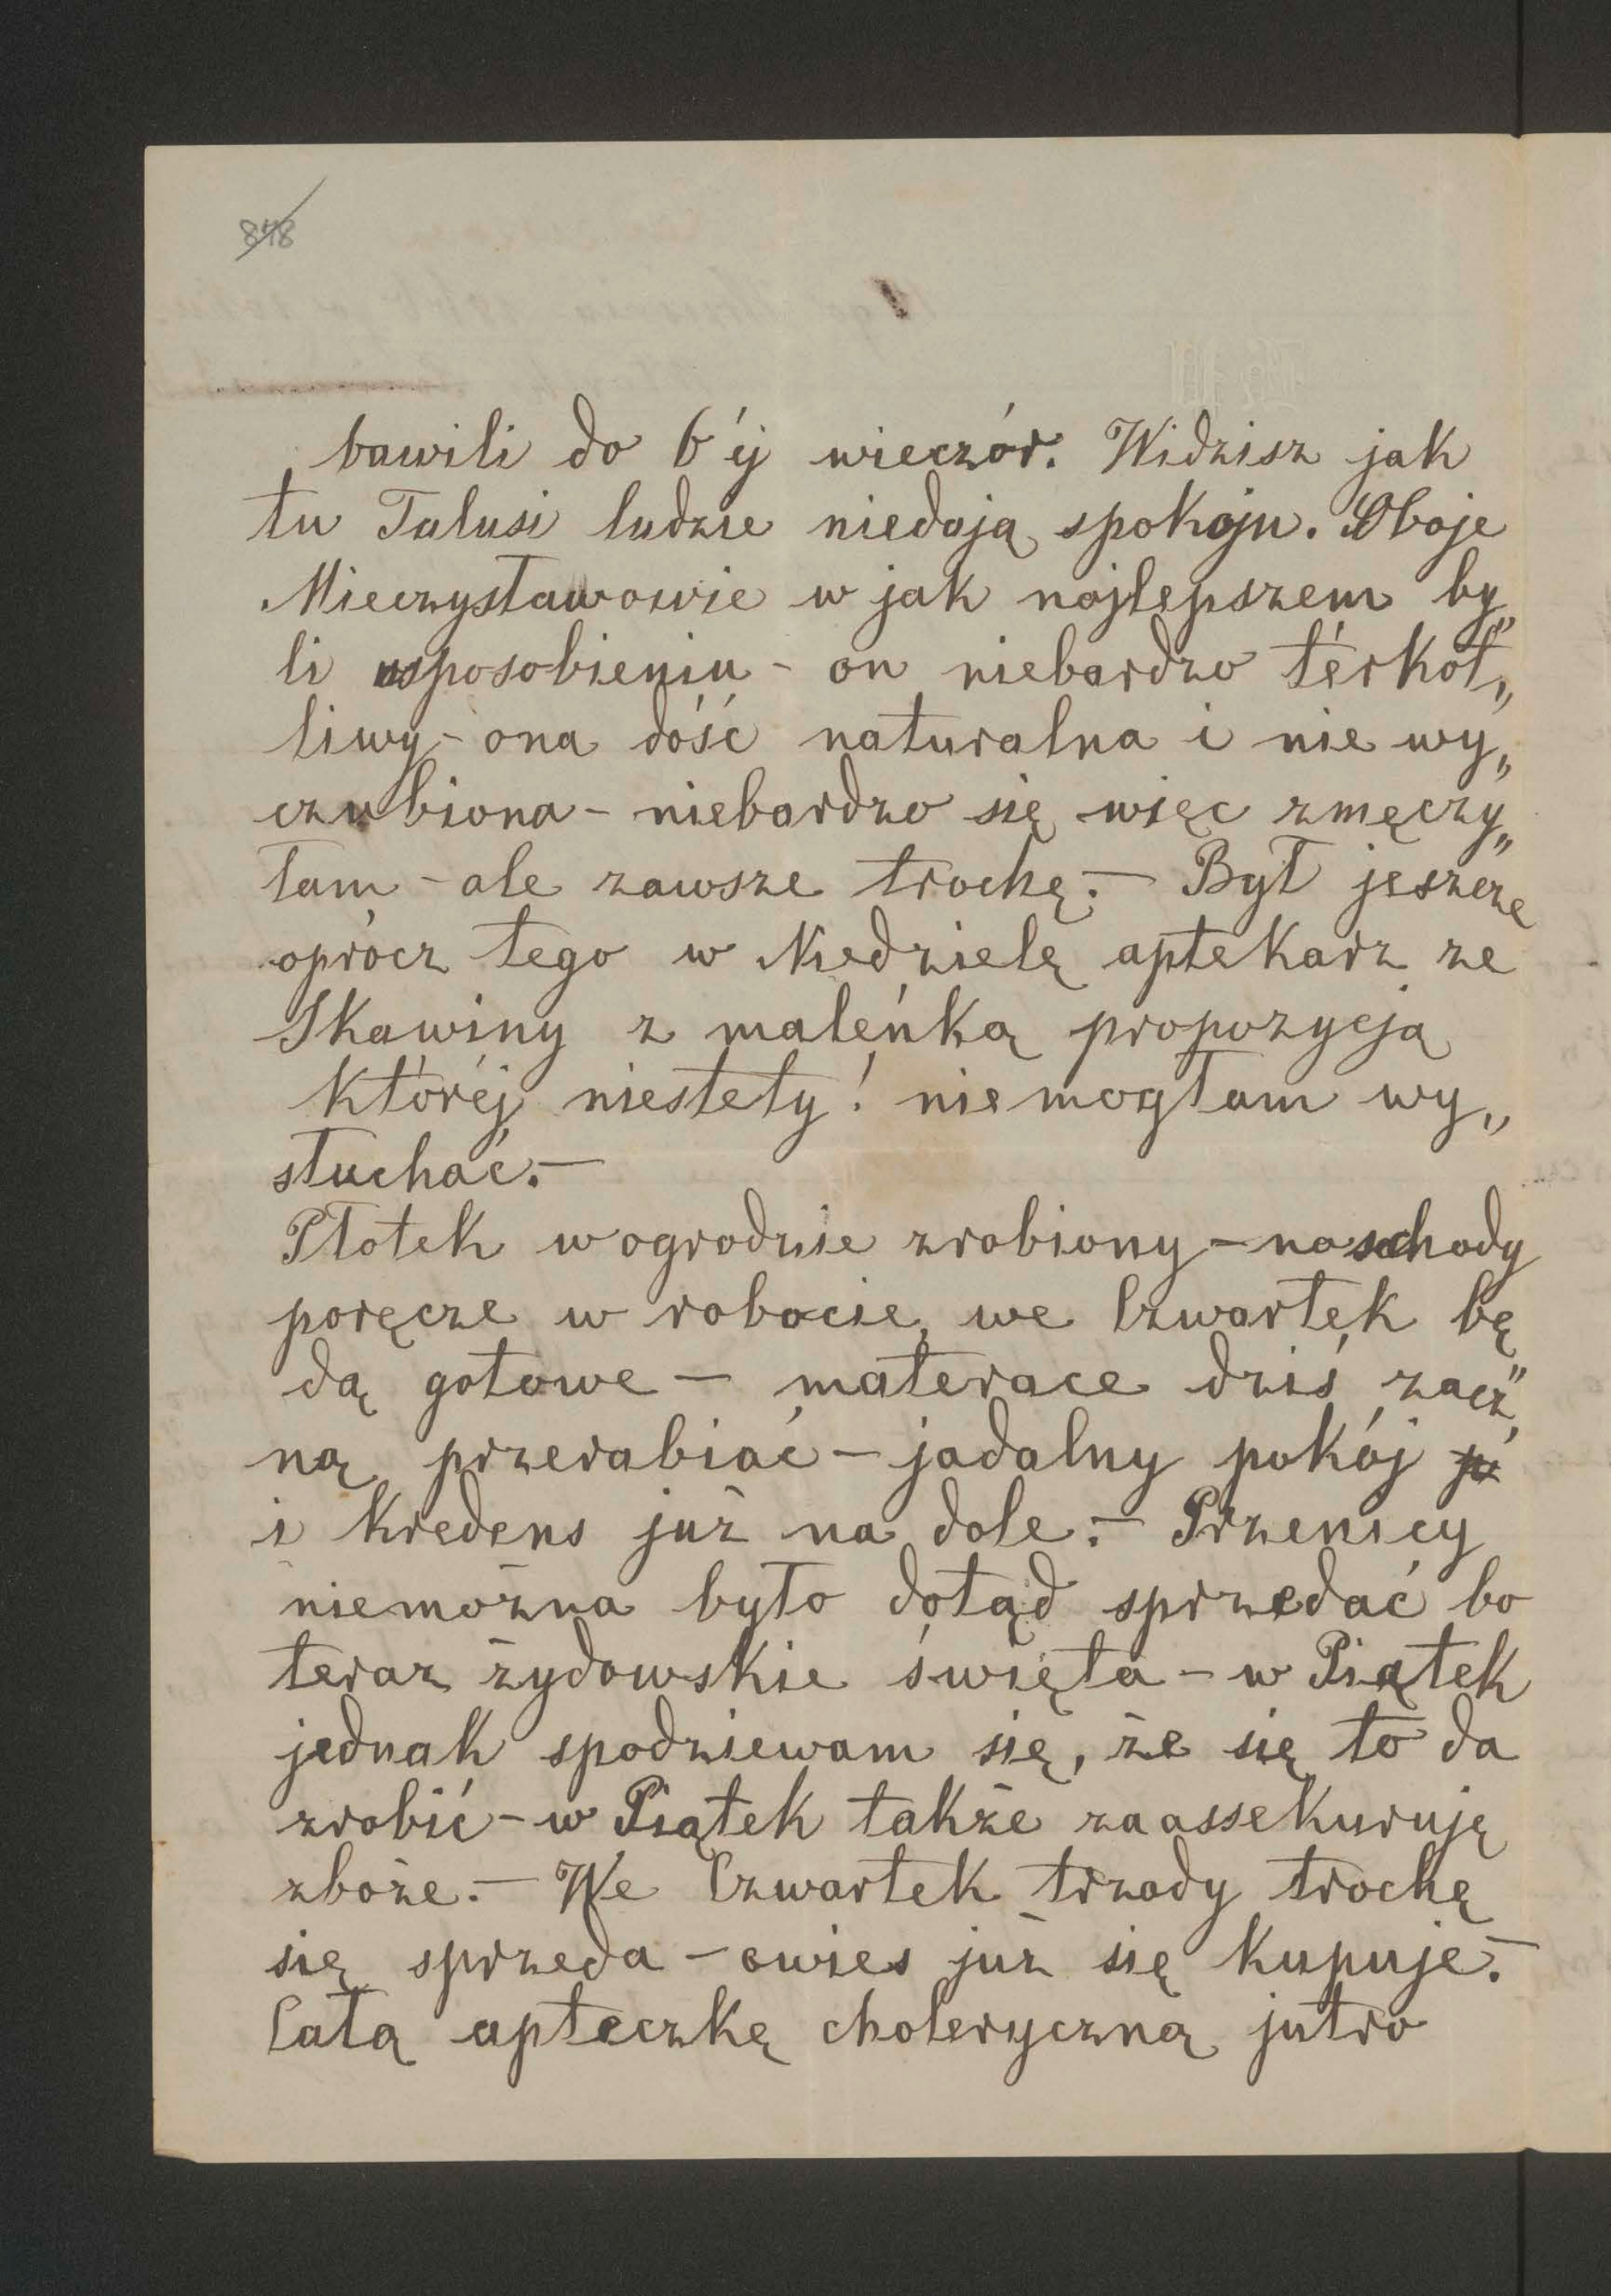 848
bawili do 6éj wieczór. Widzisz jak
tu Talusi ludzie niedają spokoju. Oboje
Mieczysławowie w jak najlepszem by„
li usposobieniu – on niebardzo térkot„
liwy – ona dość naturalna i nie wy„
czubiona – niebardzo się więc zmęczy„
łam – ale zawsze trochę. – Był jeszcze
oprócz tego w Niedzielę aptekarz ze
Skawiny z maleńką propozycją
któréj niestety! niemogłam wy„
słuchać. –
Płotek w ogrodzie zrobiony – na schody
poręcze w robocie, we Czwartek bę„
dą gotowe – materace dziś zacz„
ną przerabiać – jadalny pokój
i kredens już na dole. – Przenicy
niemożna było dotąd sprzedać bo
teraz żydowskie święta – w Piątek
jednak spodziewam się, że się to da
zrobić – w Piątek także zaassekuruję
zboże. – We Czwartek trzody trochę
się sprzeda – owies już się kupuje. –
Całą apteczkę choleryczną jutro